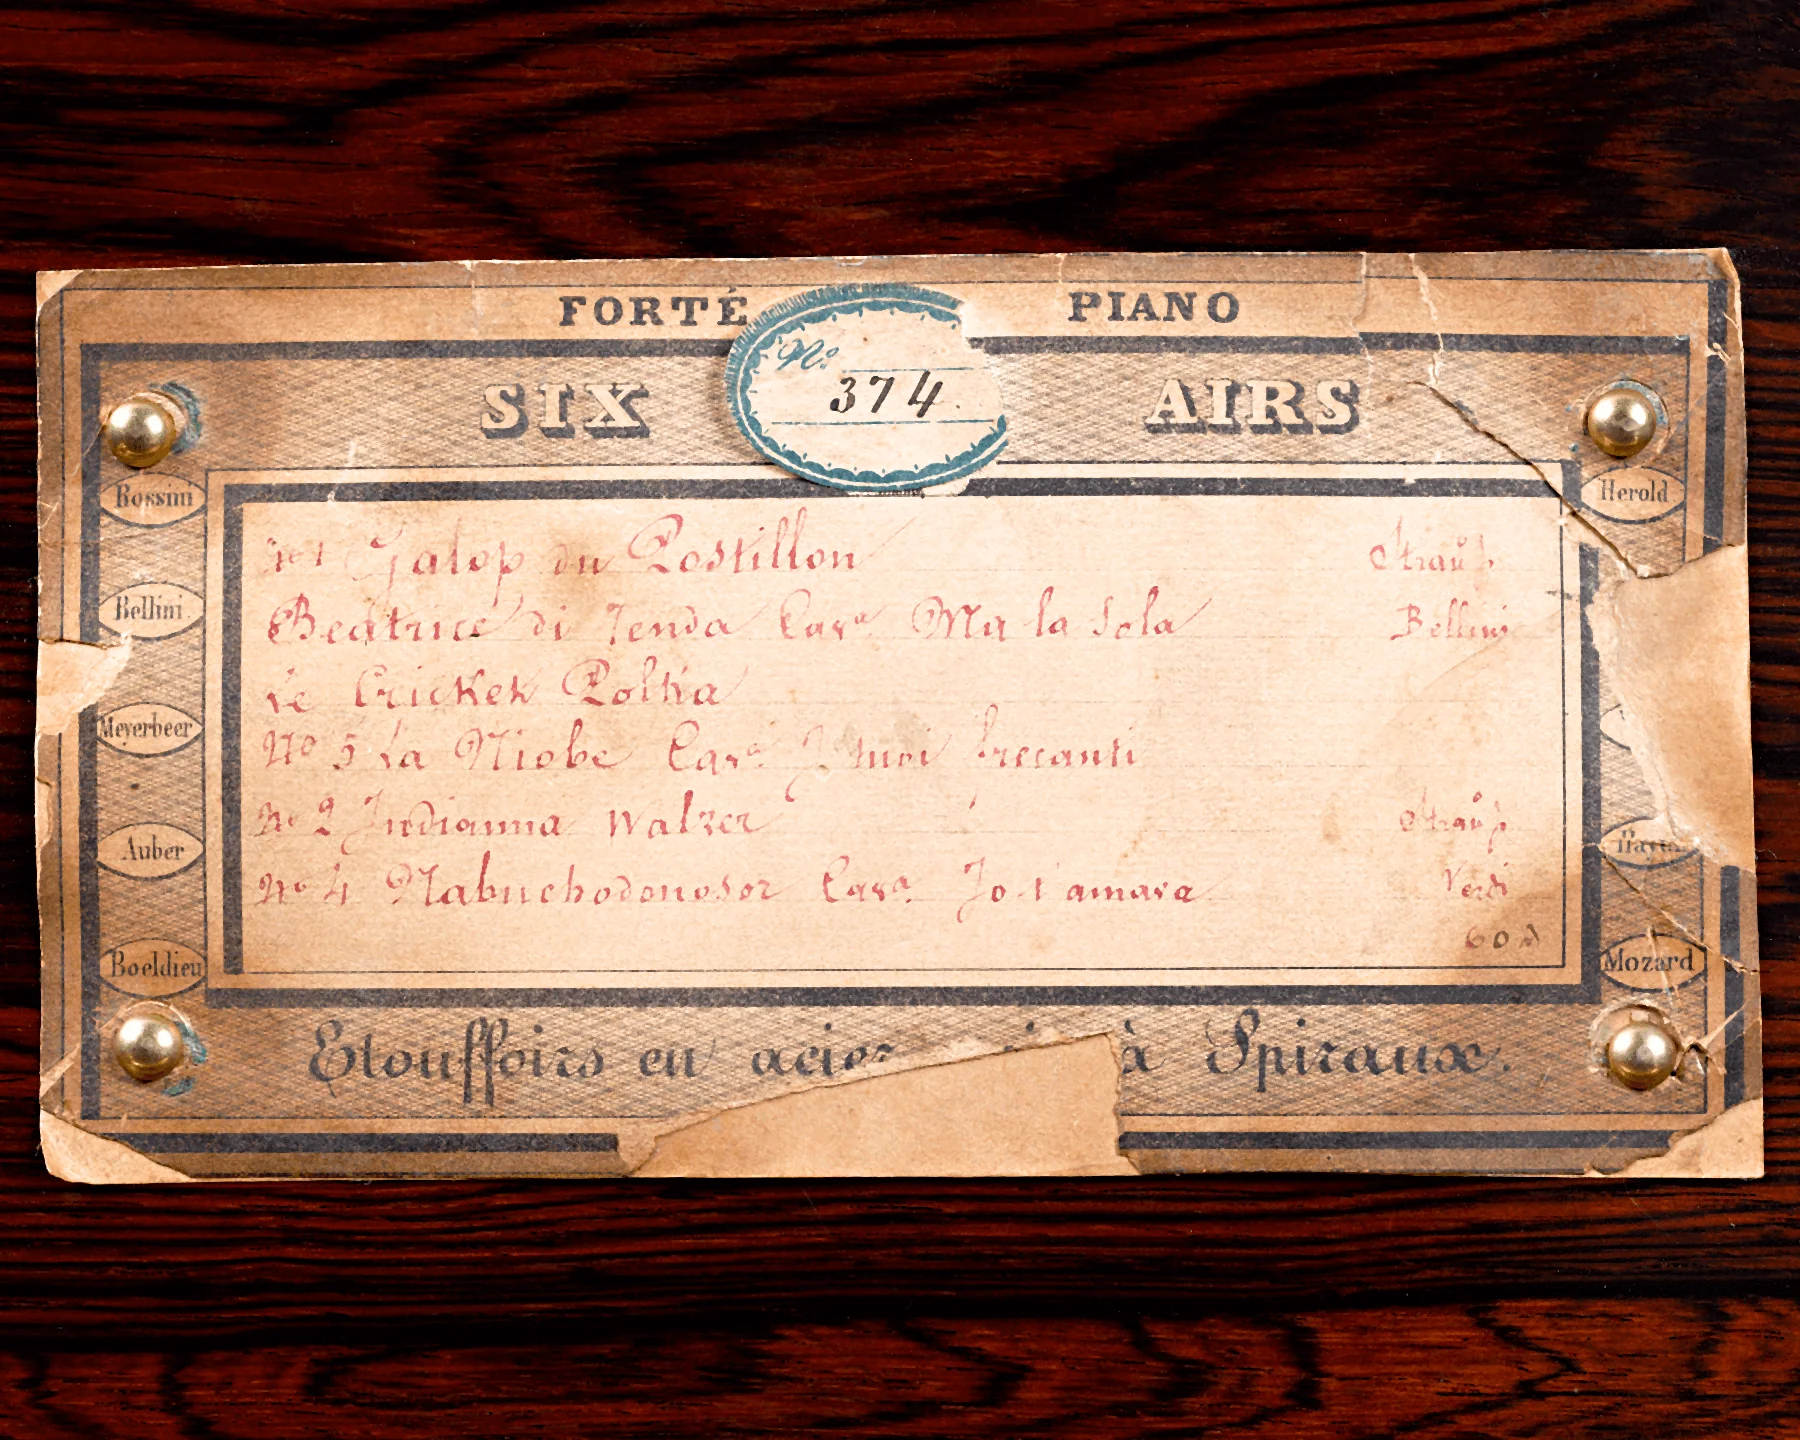 FORTÉ PIANO
SIX AIRS
No. 374
Rossini
Bellini
Meyerbeer
Auber
Boeldieu
Herold
Mozard
No 1 Galop du Postillon Strauß
Beatrice di Tenda Cava. Ma la Sola Bellini
Le Cricket Polka
No 5 La Niobe Cava. I tuoi frecanti
No 2 Indianna Walzer Strauß
No 4 Nabuchodonosor Cava. Io t'amava Verdi
60
Etouffoirs en acier à Spiraux.